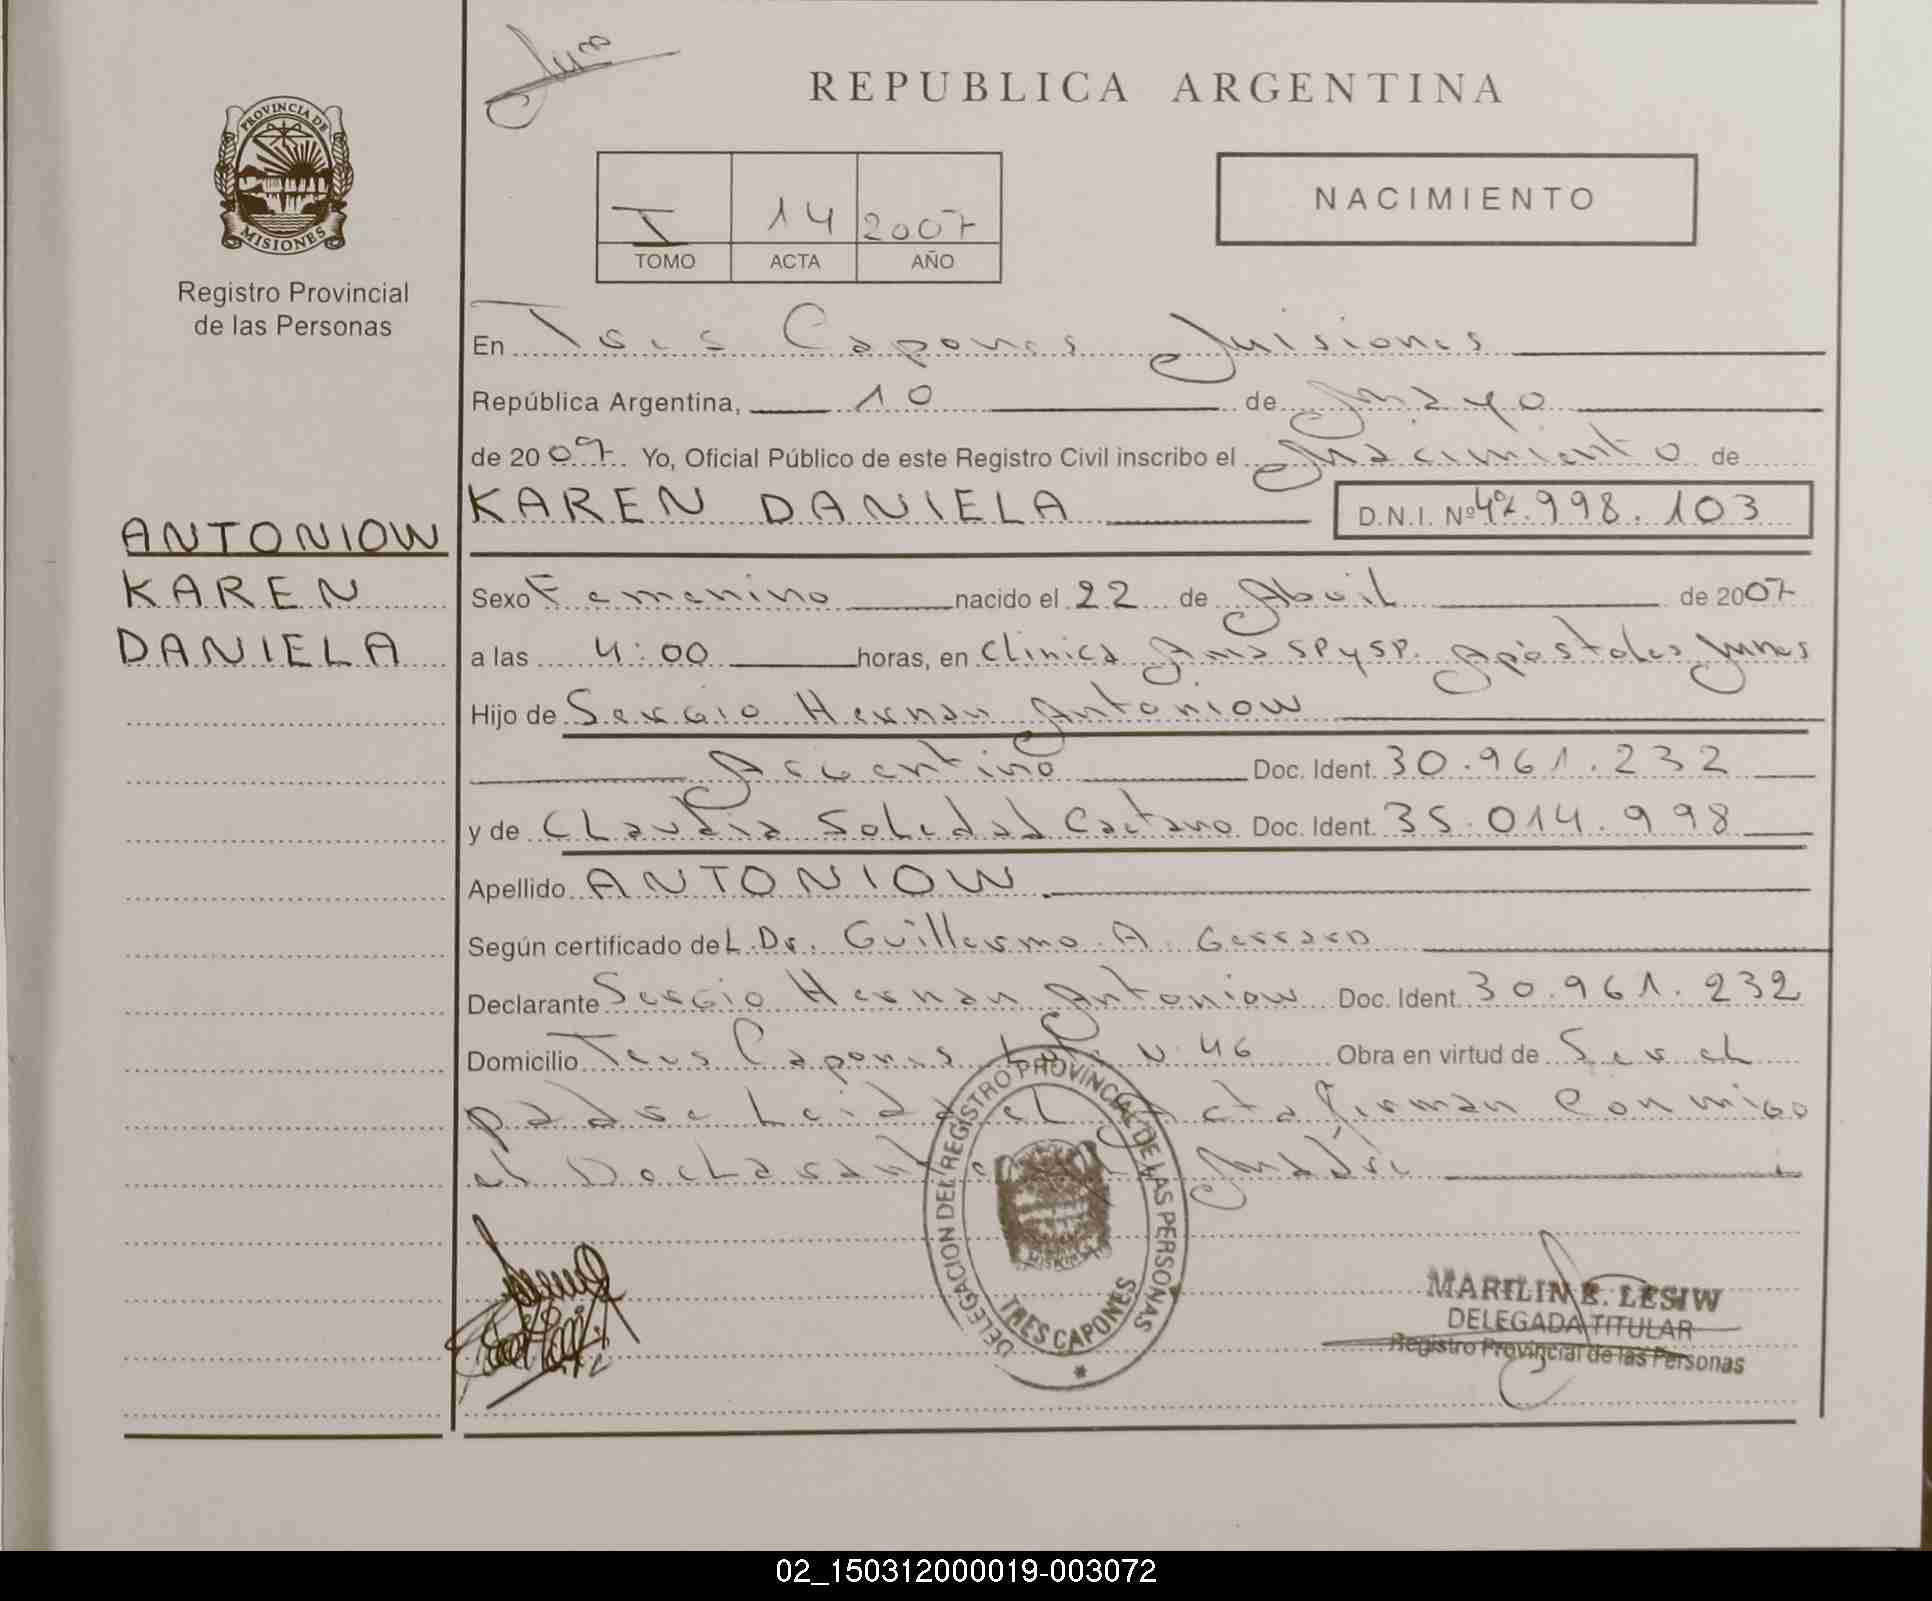 REPUBLICA ARGENTINA
PROVINCIA DE
MISIONES
Registro Provincial
de las Personas
I 14 2007
TOMO ACTA AÑO
NACIMIENTO
En Tres Capones Misiones
República Argentina, 10 de Mayo
de 2007 Yo, Oficial Público de este Registro Civil inscribo el Nacimiento de
KAREN DANIELA D.N.I. Nº 47.998.103
ANTONIOW
KAREN
DANIELA
Sexo Femenino nacido el 22 de Abril de 2007
a las 4:00 horas, en Clinica SP y SP. Apóstoles Mnes
Hijo de Sergio Hernan Antoniow
Argentino Doc. Ident. 30.961.232
y de Claudia Soledad Caetano Doc. Ident. 35.014.998
Apellido ANTONIOW
Según certificado del Dr. Guillermo A.
Declarante Sergio Hernan Antoniow Doc. Ident. 30.961.232
Domicilio Tres Capones N. 46 Obra en virtud de Ser el
padre Leida el Acta firman Conmigo
el Declarante Madre
DELEGACION DEL REGISTRO PROVINCIAL DE LAS PERSONAS
TRES CAPONES
MARILIN E. LESIW
DELEGADA TITULAR
Registro Provincial de las Personas
02_150312000019-003072